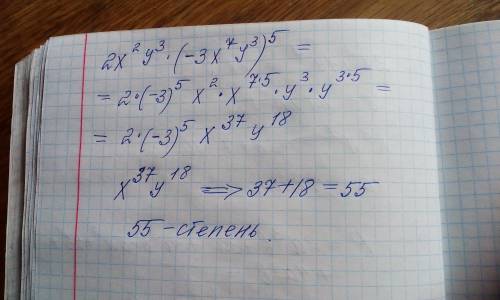 2x²y³·(-3x⁷y³)⁵ =
= 2·(-3)⁵ x²·x⁷·⁵·y³·y³·⁵ =
= 2·(-3)⁵ x³⁷y¹⁸
x³⁷y¹⁸ ⟹ 37+18=55
55-степень.